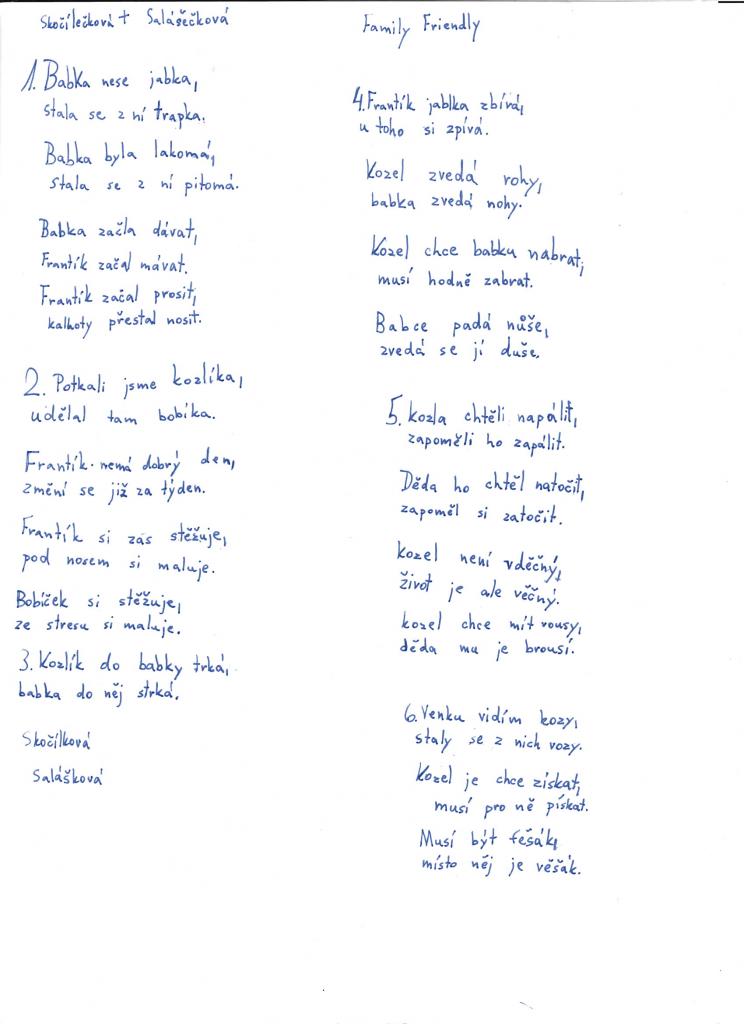 Skočílečková + Salášěčková
1. Babka nese jabka,
stala se z ní trapka.
Babka byla lakomá,
stala se z ní pitomá.
Babka začla dávat,
Frantík začal mávat.
Frantík začal prosit,
kalhoty přestal nosit.
2. Potkali jsme kozlíka,
udělal tam bobíka.
Frantík nemá dobrý den,
změní se již za týden.
Frantík si zas stěžuje,
pod nosem si maluje.
Bobíček si stěžuje,
ze stresu si maluje.
3. Kozlík do babky trká,
babka do něj strká.
Skočílková
Salášková
Family Friendly
4. Frantík jablka zbírá,
u toho si zpívá.
Kozel zvedá rohy,
babka zvedá nohy.
Kozel chce babku nabrat,
musí hodně zabrat.
Babce padá nůše,
zvedá se jí duše.
5. Kozla chtěli napálit,
zapoměli ho zapálit.
Děda ho chtěl natočit,
zapoměl si zatočit.
Kozel není vděčný,
život je ale věčný.
Kozel chce mít vousy,
děda mu je brousí.
6. Venku vidím kozy,
staly se z nich vozy.
Kozel je chce získat,
musí pro ně pískat.
Musí být fešák,
místo něj je věšák.